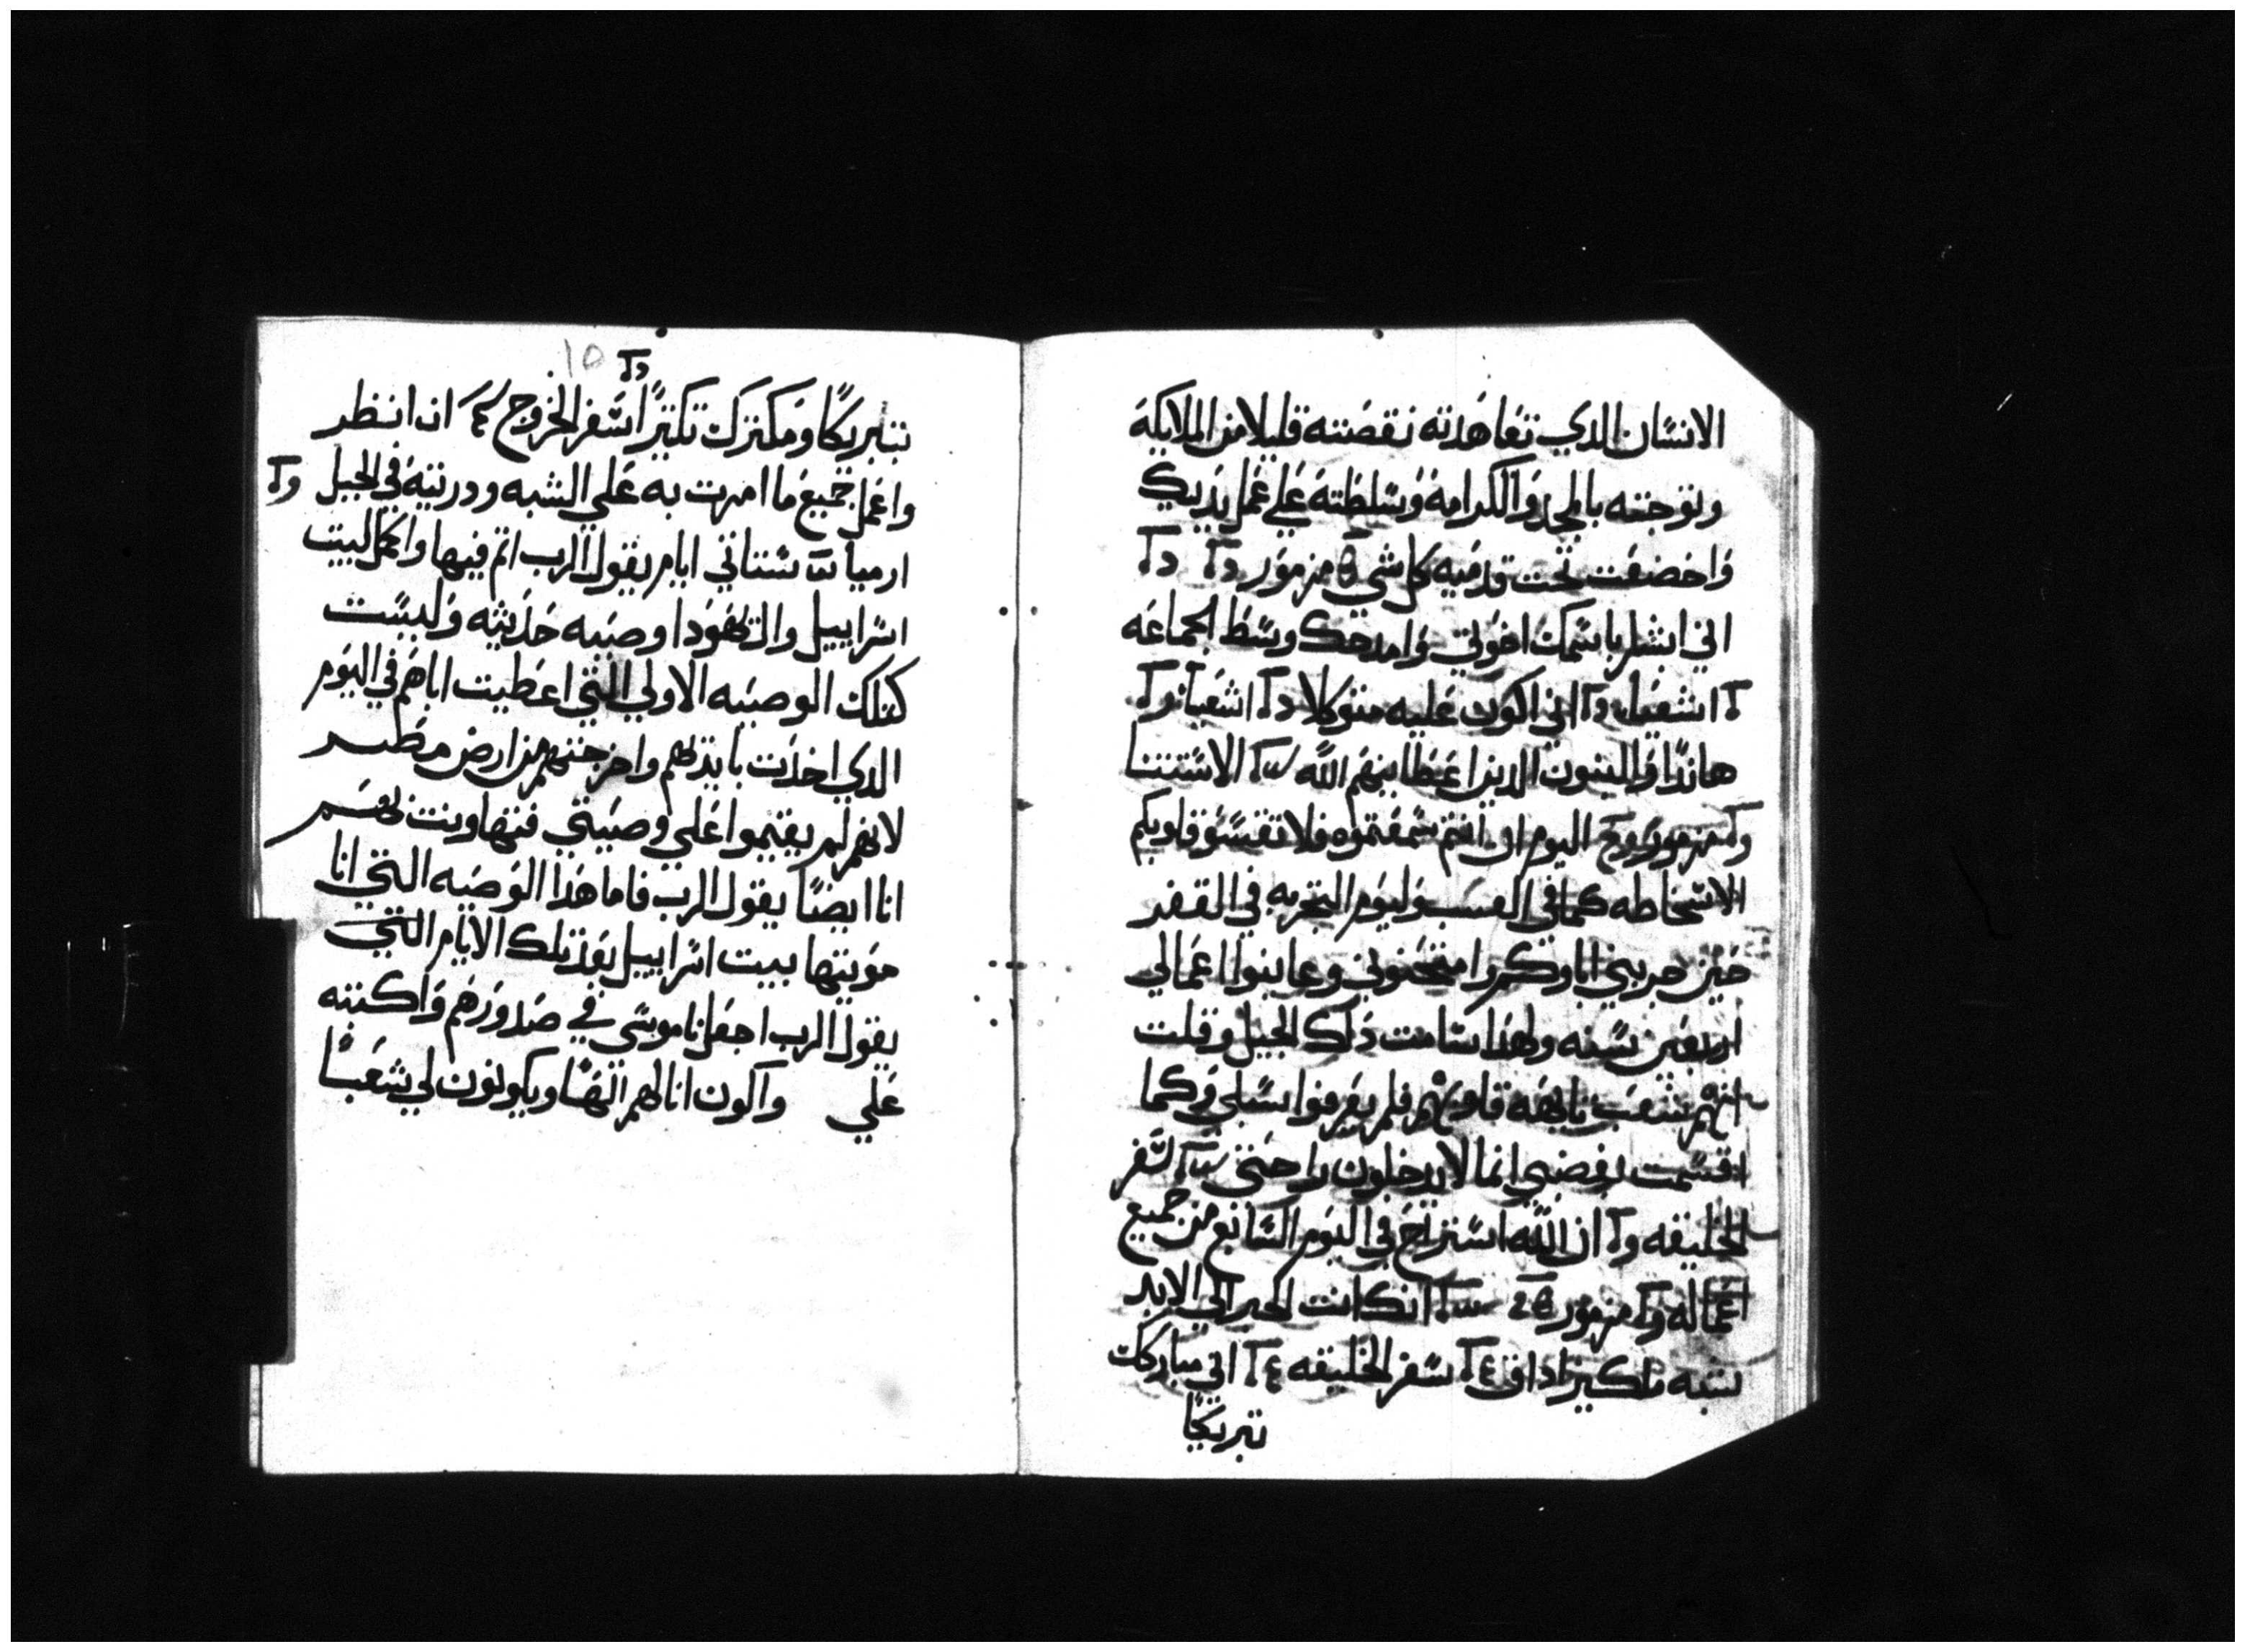 الانسان الدي تعاهدته نقصته قليلا من الملايكة
وتوجته بالمجد والكرامة وسلطته علي عمل يديك
واخضعت تحت قدميه كل شي مزمور
اني ابشر باسمك اخوتي وامدحك وسط الجماعه
اني اكون عليه متوكلا اشعيا
هاندا والبنون الدين اعطانيهم الله الاستتنا
اليوم ان انتم سمعتموه فلا تقسو قلوبكم
الاسخاطه كما في اليوم التجربه في القفر
حين جربني اباوكم وامتحنوني وعاينوا اعمالي
اربعين سنه ولهدا سامت ذلك الجيل وقلت
انهم شعب تايهه قلوبهم فلم يعرفوا سبلي وكما
اقسمت بغضبي انما لا يدخلون راحتي سفر
الخليقه ان الله استراح في اليوم السابع من جميع
اعماله مزمور انك انت الحبر الي الابد
شبه ملكيزاداق سفر الخليقه اني مباركك
تبريكًا
10
تبريكًا ومكترك تكتيرًا سفر الخروج انظر
واعمل جميع ما امرت به علي الشبه وردريتة في الجبل
ارميا ستاتي ايام يقول الرب اتم فيها واكمل لبيت
اسراييل وال يهودا وصيه حديثه وليست
كتلك الوصيه الاولي التي اعطيت اباهم في اليوم
الدي اخدت بايديهم واخرجتهم من ارض مصر
لانهم لم يقيموا علي وصيتي فتهاونت بهم
انا ايضًا يقول الرب فاما هدا الوصيه التي انا
موتيها بيت اسراييل بعد تلك الايام التي
يقول الرب اجعل ناموسي في صدورهم واكتبه
علي واكون انا لهم الهًا ويكونون لي شعبًا